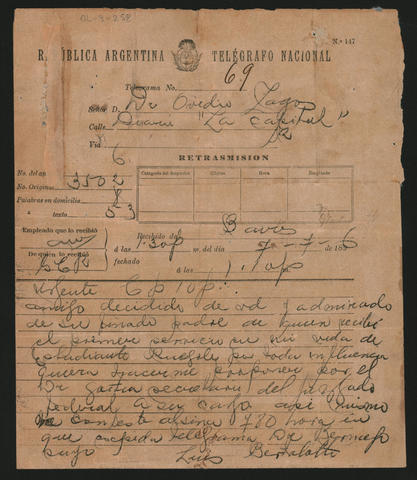 N.º 147
REPÚBLICA ARGENTINA TELÉGRAFO NACIONAL
Telegrama No. 69
Señor D. Dr Ovidio Lagos
Calle Diario "La Capital"
Via 6
RETRASMISION
No. del an
No. Origina 3502
Palabras en domicilio 8
texto 53
Categoría del despacho Oficina Hora Empleado
Empleado que lo recibió
De quien lo recibió
Recibido de Baires
á las 1.30 p m. del día 7-7-6 de 189
fechado á las 1.10 p
Urgente 6 p 10 p
amigo decidido de vd y admirador
de su finado padre de quien recibí
el primer servicio en mi vida de
Estudiante ruegole por toda influencia
quiera hacerme proponer por el
Dr secretario del juzgado
federal a su cargo asi mismo
me conteste 780 hora en
que telegrama Dr
suyo Luis Bertolotti